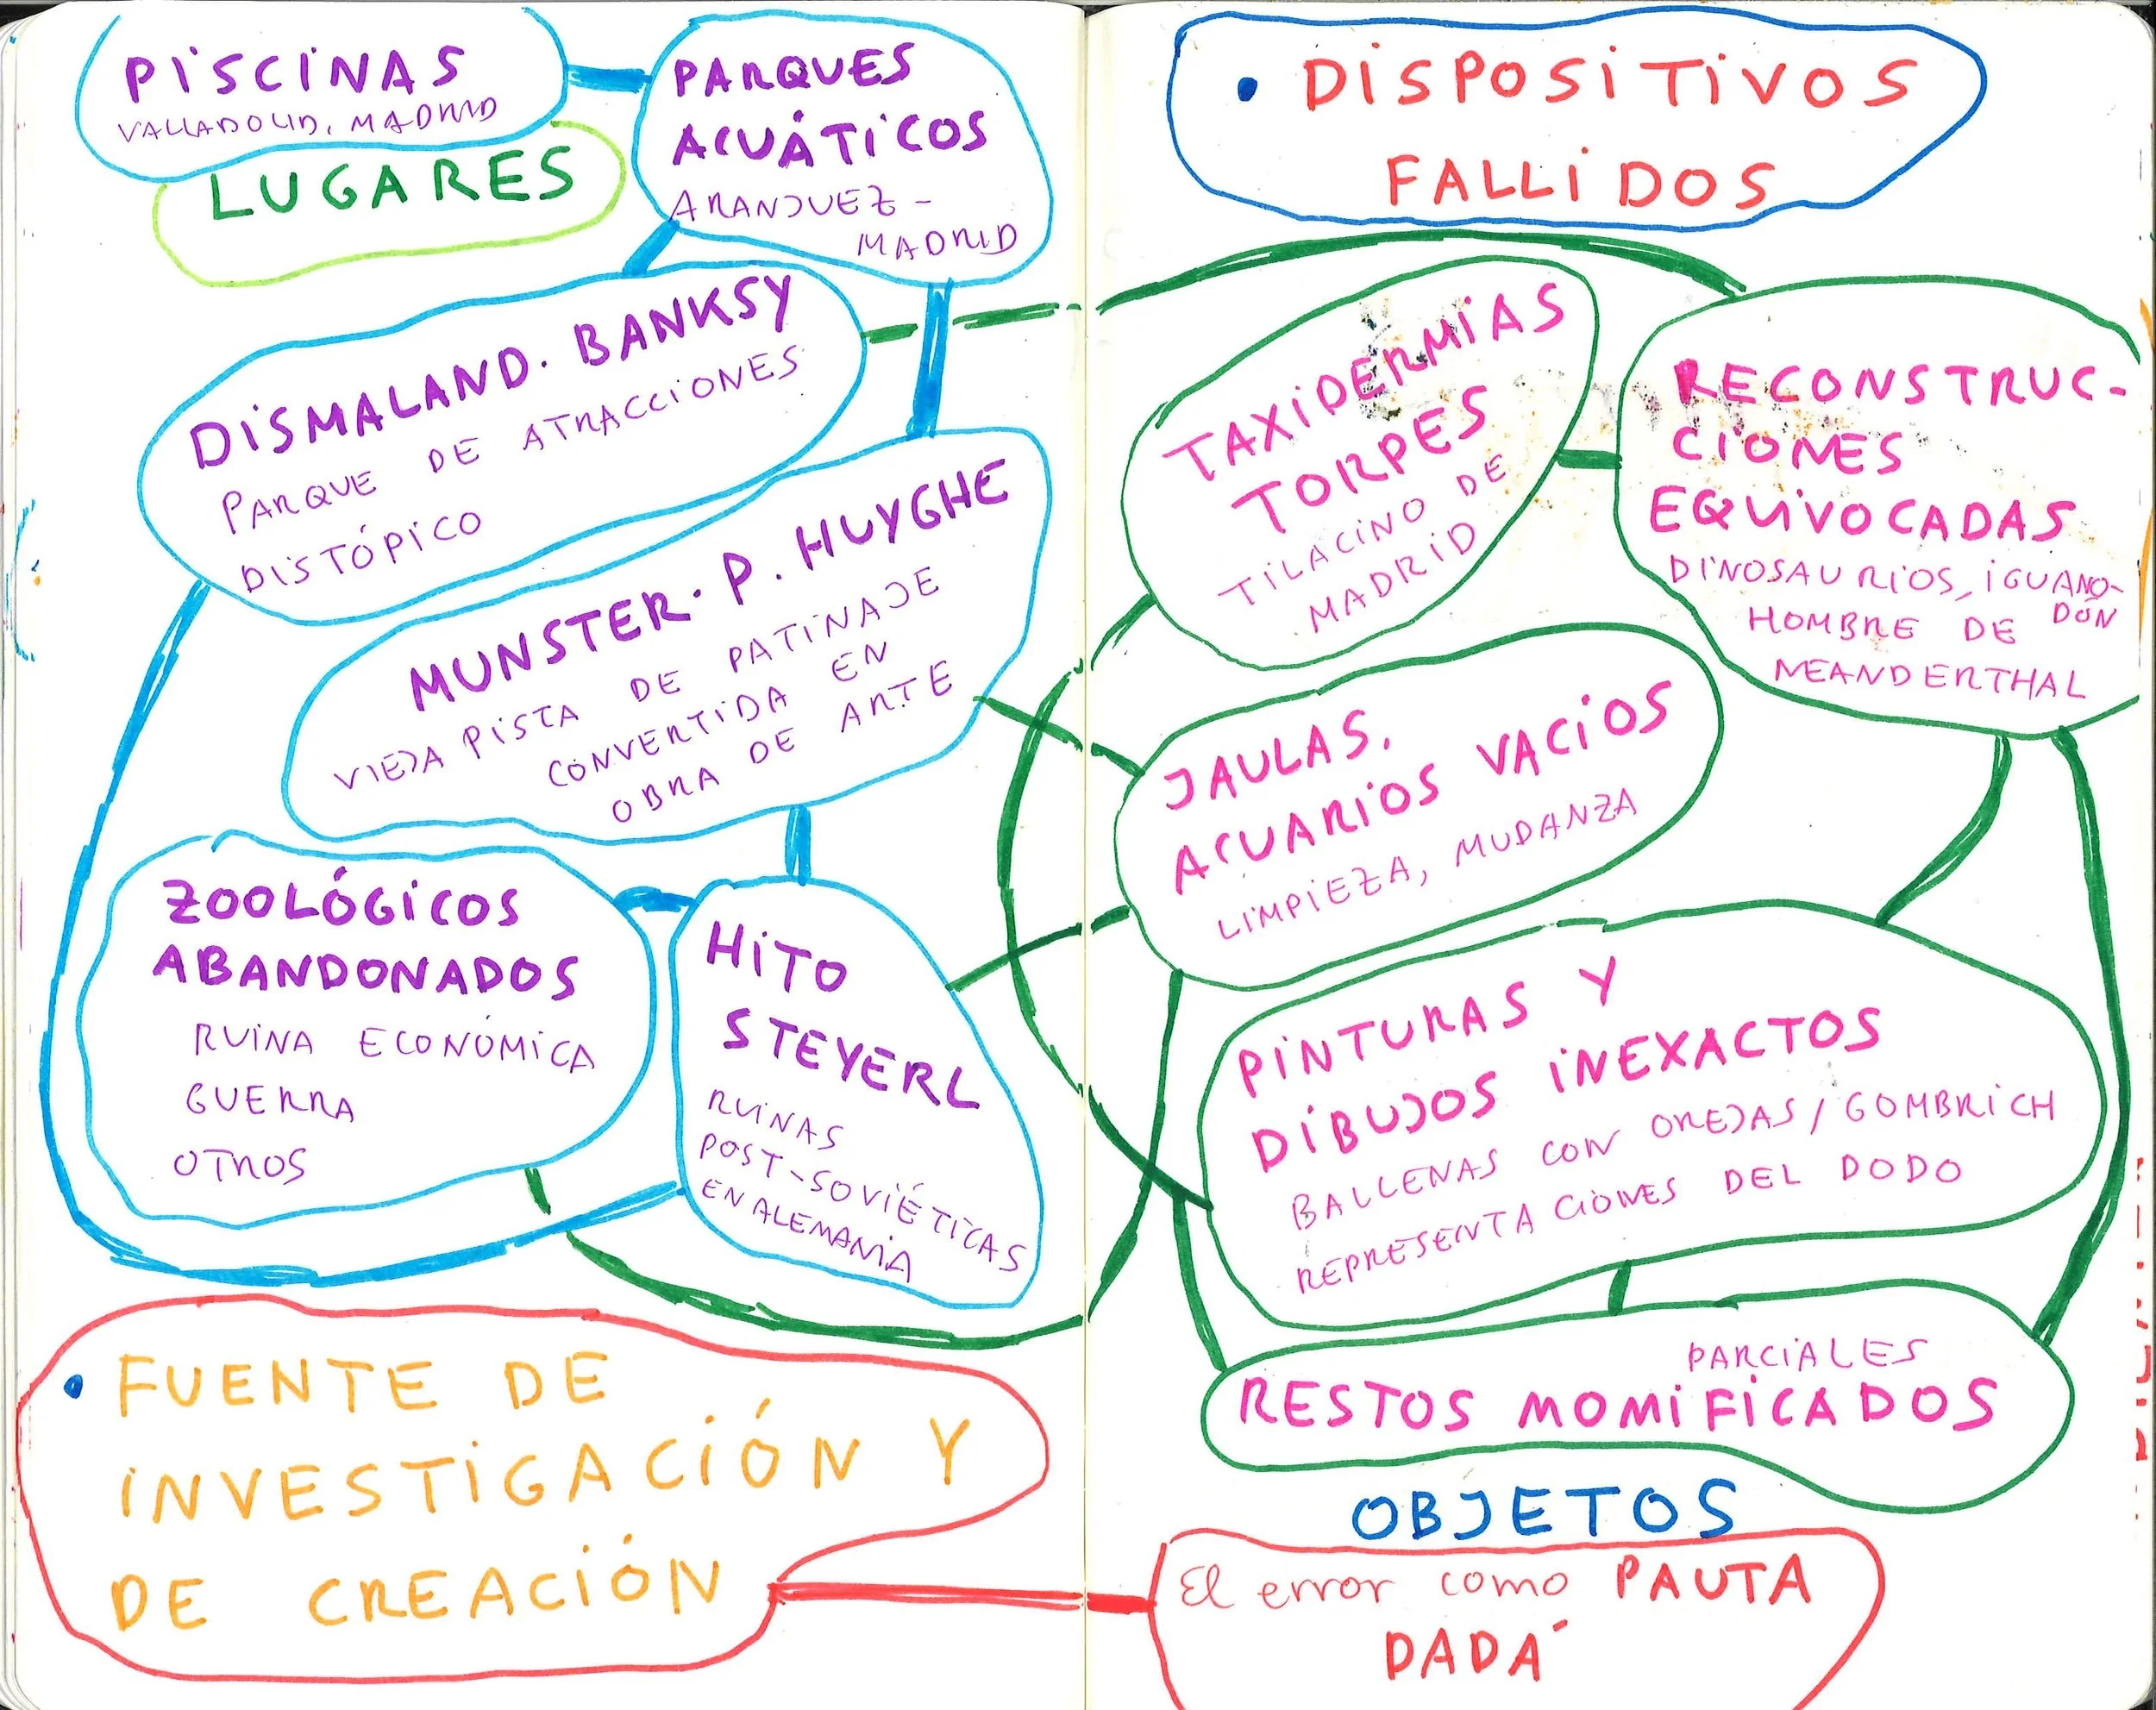 PISCINAS
VALLADOLID, MADRID
LUGARES
PARQUES
ACUÁTICOS
ARANJUEZ -
MADRID
DISMALAND. BANKSY
PARQUE DE ATRACCIONES
DISTÓPICO
MUNSTER. P. HUYGHE
VIEJA PISTA DE PATINAJE
CONVERTIDA EN
OBRA DE ARTE
ZOOLÓGICOS
ABANDONADOS
RUINA ECONÓMICA
GUERRA
OTROS
HITO
STEYERL
RUINAS
POST-SOVIÉTICAS
EN ALEMANIA
• FUENTE DE
INVESTIGACIÓN Y
DE CREACIÓN
• DISPOSITIVOS
FALLIDOS
TAXIDERMIAS
TORPES
TILACINO DE
MADRID
RECONSTRUC-
CIONES
EQUIVOCADAS
DINOSAURIOS, IGUANO-
DÓN
HOMBRE DE
NEANDERTHAL
JAULAS.
ACUARIOS VACIOS
LIMPIEZA, MUDANZA
PINTURAS Y
DIBUJOS INEXACTOS
BALLENAS CON OREJAS / GOMBRICH
REPRESENTACIONES DEL DODO
PARCIALES
RESTOS MOMIFICADOS
OBJETOS
El error como PAUTA
DADÁ